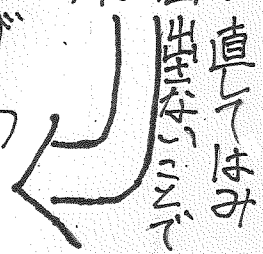 直してはみ
出さないことで